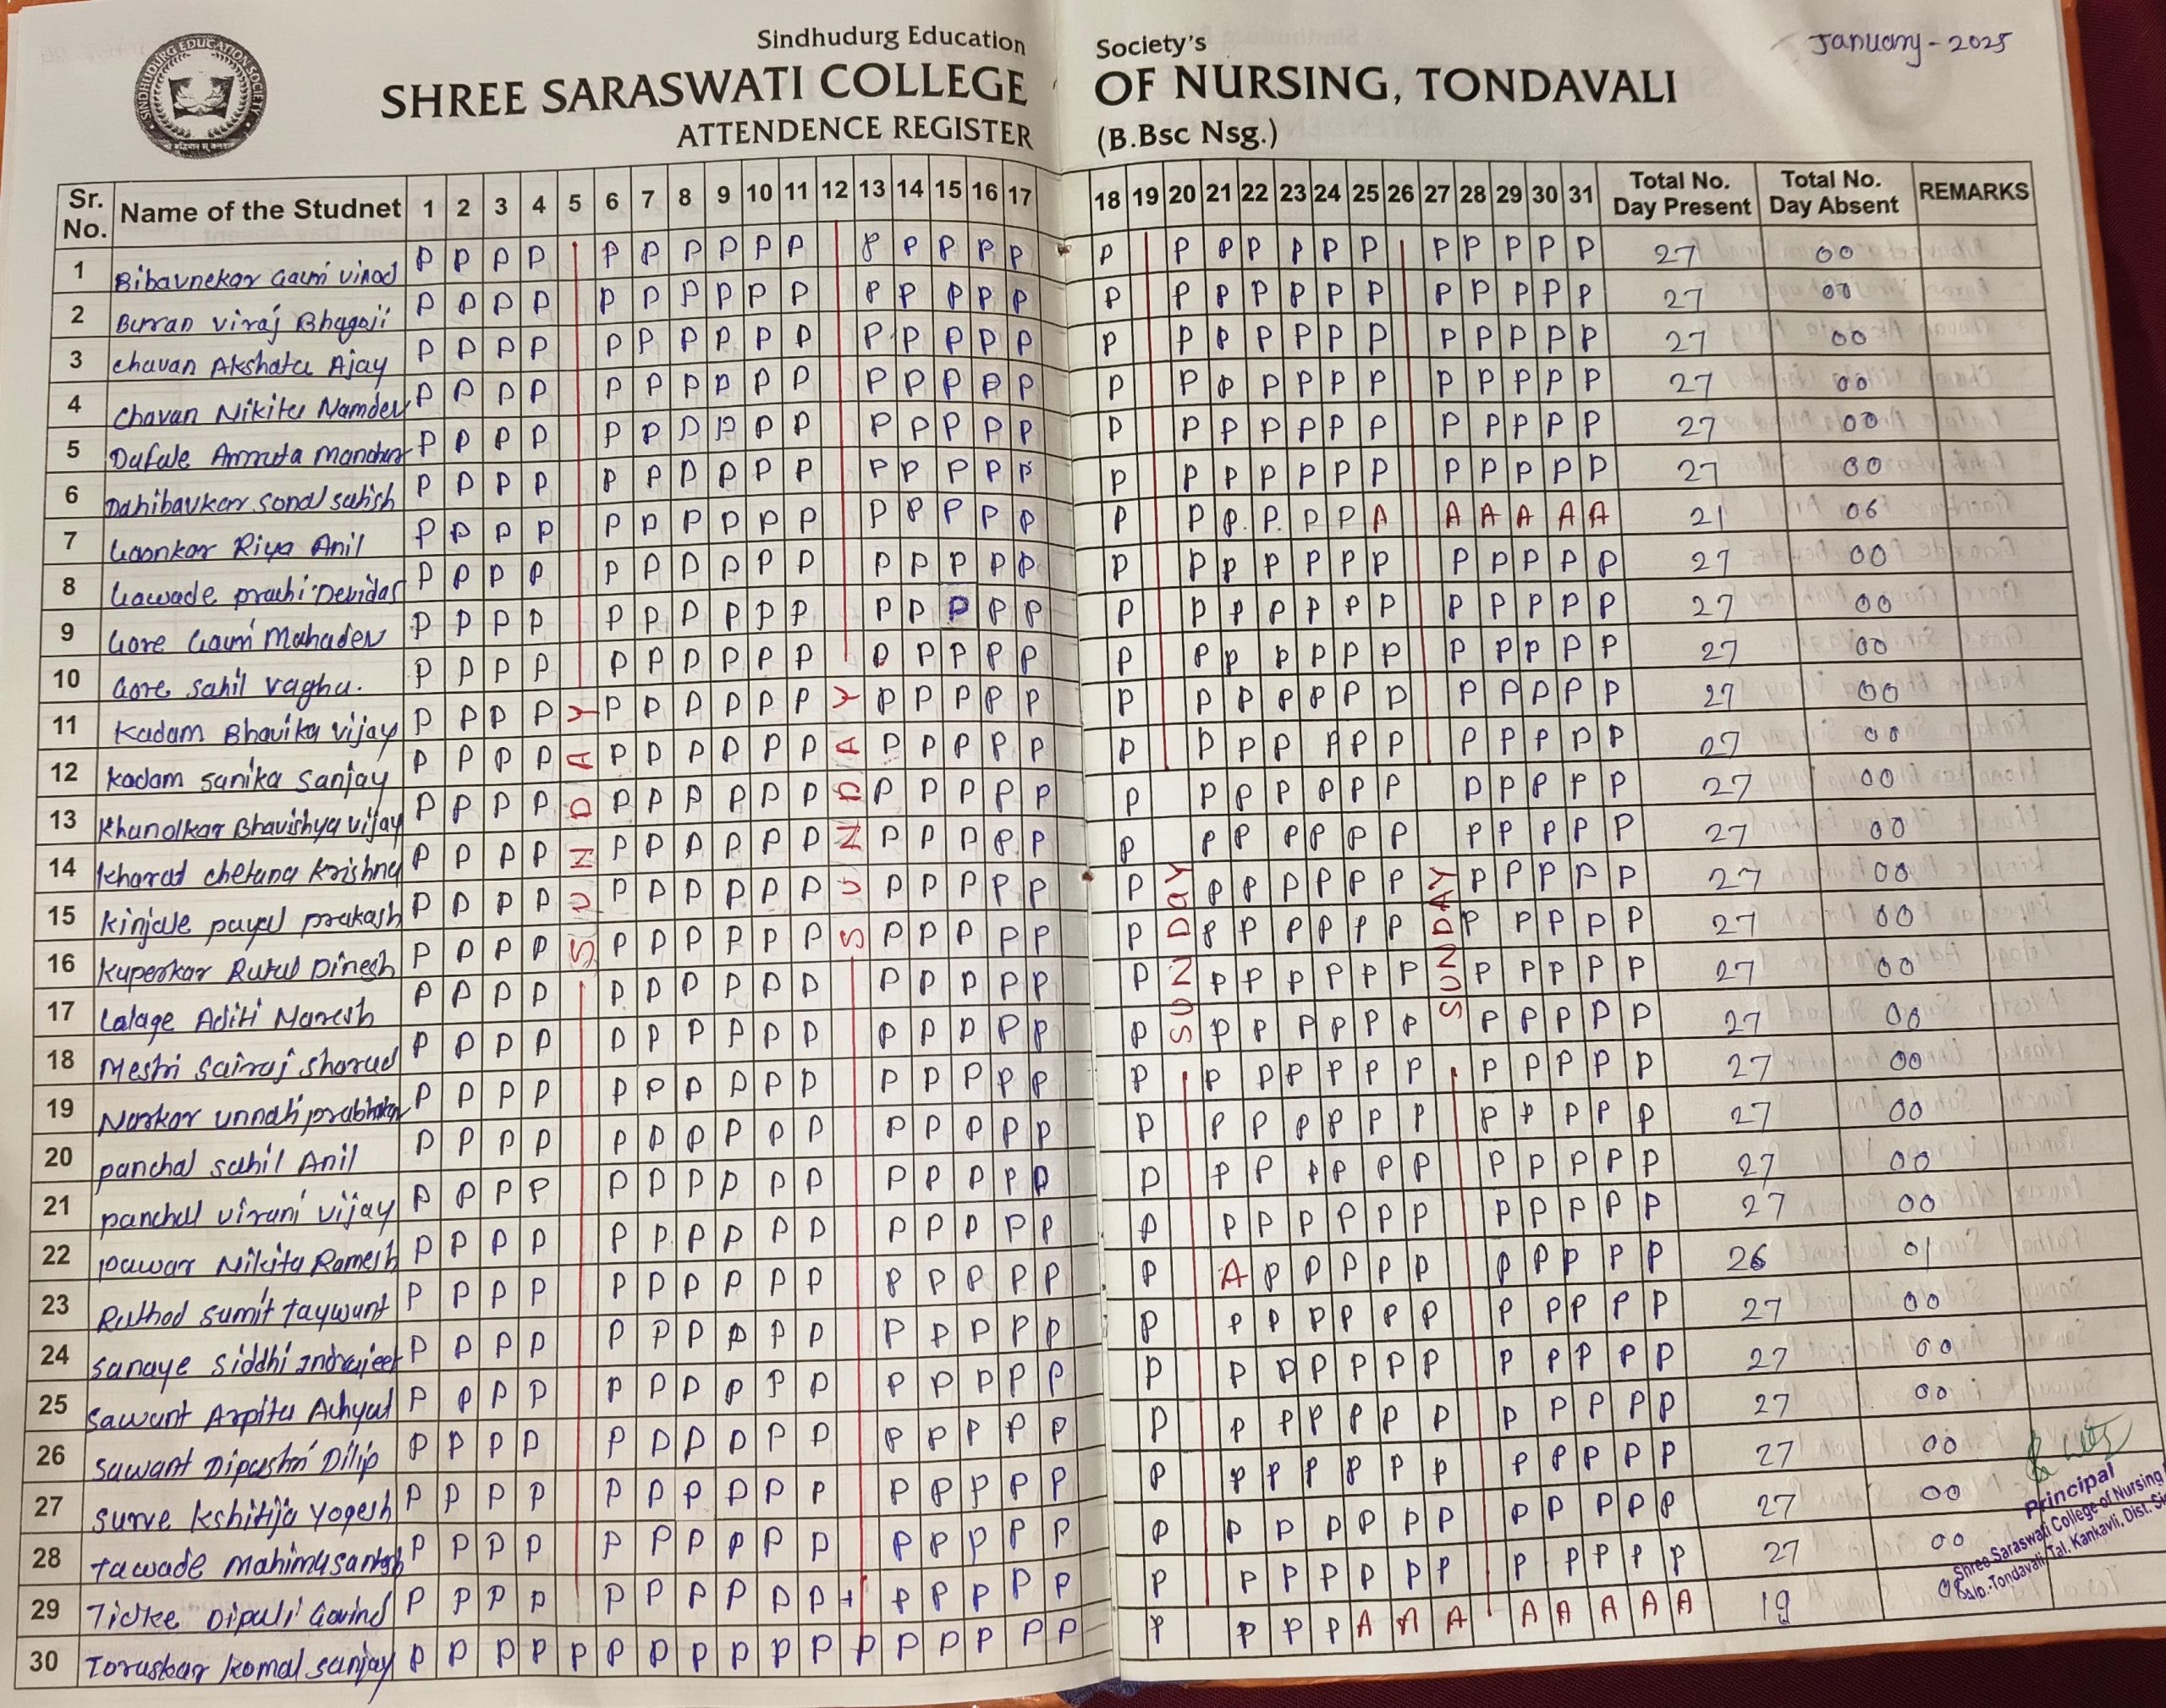 Sindhudurg Education Society's
SHREE SARASWATI COLLEGE OF NURSING, TONDAVALI
ATTENDENCE REGISTER (B.Bsc Nsg.)
January - 2025
SINDHUDURG EDUCATION SOCIETY
Sr. No. Name of the Studnet 1 2 3 4 5 6 7 8 9 10 11 12 13 14 15 16 17 18 19 20 21 22 23 24 25 26 27 28 29 30 31 Total No. Day Present Total No. Day Absent REMARKS
1 Bibavnekar Gauri Vinod P P P P P P P P P P P P P P P P P P P P P P P P P P P 27 00
2 Burran Viraj Bhagoji P P P P P P P P P P P P P P P P P P P P P P P P P P P 27 00
3 Chavan Akshata Ajay P P P P P P P P P P P P P P P P P P P P P P P P P P P 27 00
4 Chavan Nikita Namdev P P P P P P P P P P P P P P P P P P P P P P P P P P P 27 00
5 Dafale Amruta P P P P P P P P P P P P P P P P P P P P P P P P P P P 27 00
6 Dahibavkar Sonal Satish P P P P P P P P P P P P P P P P P P P P P P P P P P P 27 00
7 Gaonkar Riya Anil P P P P P P P P P P P P P P P P P P P P P A A A A A A 21 06
8 Gawade Prachi Devidas P P P P P P P P P P P P P P P P P P P P P P P P P P P 27 00
9 Gore Gauri Mahadev P P P P P P P P P P P P P P P P P P P P P P P P P P P 27 00
10 Gore Sahil Vaghu. P P P P P P P P P P P P P P P P P P P P P P P P P P P 27 00
11 Kadam Bhavika Vijay P P P P P P P P P P P P P P P P P P P P P P P P P P P 27 00
12 Kadam Sanika Sanjay P P P P P P P P P P P P P P P P P P P P P P P P P P P 27 00
13 Khanolkar Bhavishya Vijay P P P P P P P P P P P P P P P P P P P P P P P P P P P 27 00
14 Kharad Chetana Krishna P P P P P P P P P P P P P P P P P P P P P P P P P P P 27 00
15 Kinjale Payal Prakash P P P P P P P P P P P P P P P P P P P P P P P P P P P 27 00
16 Kuperkar Rutul Dinesh P P P P P P P P P P P P P P P P P P P P P P P P P P P 27 00
17 Lalage Aditi Naresh P P P P P P P P P P P P P P P P P P P P P P P P P P P 27 00
18 Mestri Sairaj Sharad P P P P P P P P P P P P P P P P P P P P P P P P P P P 27 00
19 Narkar Unnati Prabhakar P P P P P P P P P P P P P P P P P P P P P P P P P P P 27 00
20 Panchal Sahil Anil P P P P P P P P P P P P P P P P P P P P P P P P P P P 27 00
21 Panchal Virani Vijay P P P P P P P P P P P P P P P P P P P P P P P P P P P 27 00
22 Pawar Nikita Ramesh P P P P P P P P P P P P P P P P P P P P P P P P P P P 27 00
23 Rathod Sumit Taywant P P P P P P P P P P P P P P P P A P P P P P P P P P P 26 01
24 Sanaye Siddhi Indrajeet P P P P P P P P P P P P P P P P P P P P P P P P P P P 27 00
25 Sawant Arpita Achyut P P P P P P P P P P P P P P P P P P P P P P P P P P P 27 00
26 Sawant Dipashri Dilip P P P P P P P P P P P P P P P P P P P P P P P P P P P 27 00
27 Surve Kshitija Yogesh P P P P P P P P P P P P P P P P P P P P P P P P P P P 27 00
28 Tawade Mahima Santosh P P P P P P P P P P P P P P P P P P P P P P P P P P P 27 00
29 Tirke Dipali Govind P P P P P P P P P P P P P P P P P P P P P P P P P P P 27 00
30 Toraskar Komal Sanjay P P P P P P P P P P P P P P P P P P P P P A A A A A A A A 19
SUNDAY
SUNDAY
SUNDAY
SUNDAY
Principal
Shree Saraswati College of Nursing
Tondavali, Tal. Kankavli, Dist.